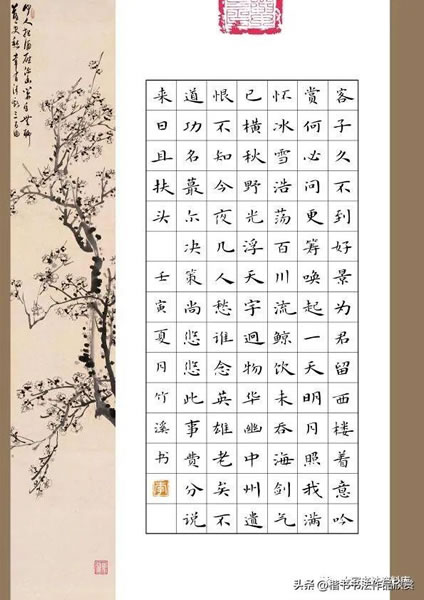 客子久不到好景为君留西楼着意吟
赏何必问更筹唤起一天明月照我满
怀冰雪浩荡百川流鲸饮未吞海剑气
已横秋野光浮天宇迥物华幽中州遗
恨不知今夜几人愁谁念英雄老矣不
道功名蕞尔决策尚悠悠此事费分说
来日且扶头
壬寅夏月竹溪书
头条 @楷书书法作品欣赏